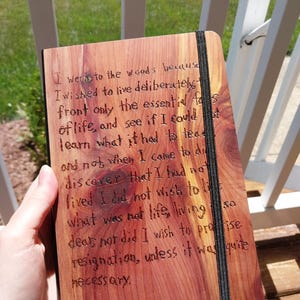 I went to the woods because
I wished to live deliberately,
front only the essential facts
of life, and see if I could not
learn what it had to teach
and not, when I came to die
discover that I had not
lived I did not wish to
what was not life, living so
dear, nor did I wish to practise
resignation, unless it was quite
necessary.